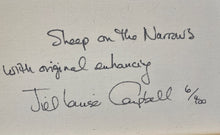 Sheep on the Narrows
With original enhancing
Jill Louise Campbell 6/400